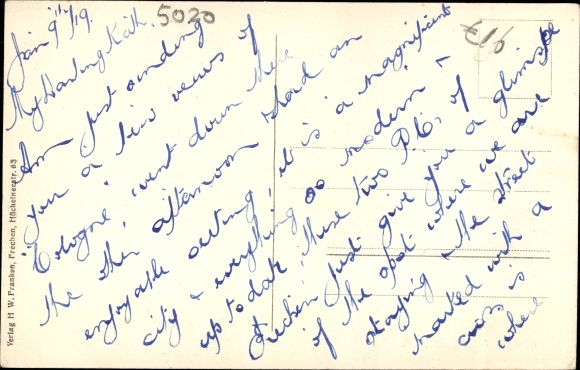 5020
€16
Jan 9th/19.
My Darling Kath.
Am just sending
you a few views of
"Cologne", went down there
the other afternoon & had an
enjoyable outing, it is a magnificent
city & everything so modern &
up to date, these two P.C. of
Frechen, just give you a glimpse
of the spot where we are
staying & the street
marked with a
cross is
where
Verlag H. W. Franken, Frechen, Hüchelnerstr. 63